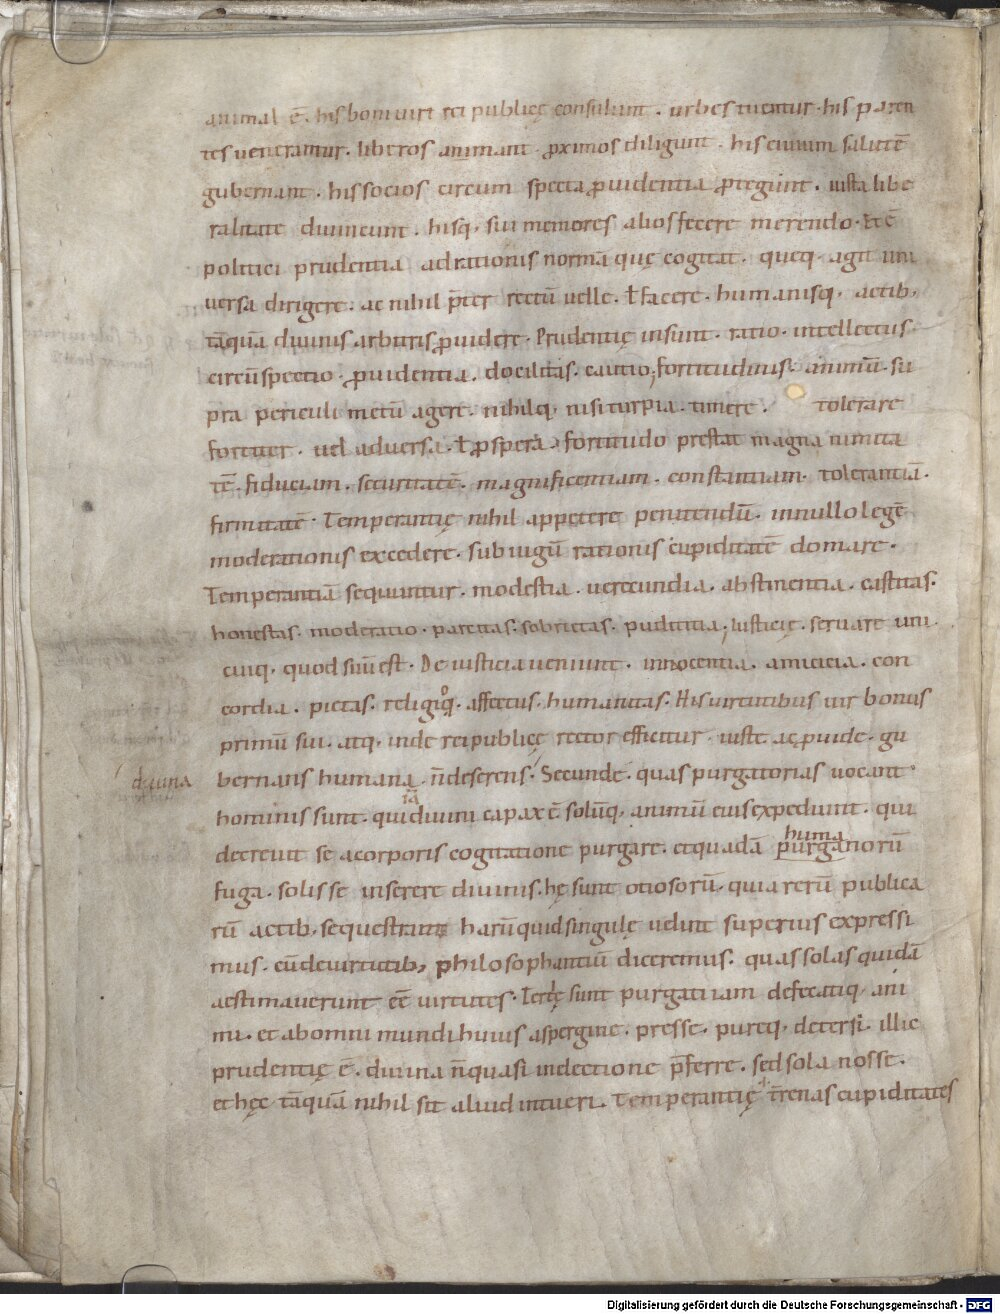 animal ē. his boni uiri rei publicę consulunt. urbes tuentur. his paren
tes uenerantur. liberos animant. ꝓximos diligunt. his ciuium salutē
gubernant. his socios circum specta ꝓuidentia ꝓtegunt. iusta libe
ralitate diuinciunt. hisq; sui memores alios fecere merendo. Et ē
politici prudentia ad rationis normā quę cogitat. queq; agit uni
uersa dirigere. ac nihil p̄ter rectū uelle. ł facere. humanisq; actib;
tāquā diuinis arbitris ꝓuidere. Prudentię insunt. ratio. intellectus.
circūspectio. ꝓuidentia. docilitas. cautio; fortitudinis. animū su
pra periculi metū agere. nihilq; nisi turpia timere. tolerare
fortiter. uel aduersa. ł ꝓspera. fortitudo prestat magnanimita
tē. fiduciam. securitatē. magnificentiam. constantiam. tolerantiā.
firmitatē. Temperantię nihil appetere penitendū. in nullo legē
moderationis excedere. sub iugū rationis cupiditatē domare.
Temperantiā sequuntur. modestia. uerecundia. abstinentia. castitas.
honestas. moderatio. parcitas. sobrietas. pudicitia; Iusticię. seruare uni
cuiq; quod suū est. De iusticia ueniunt. innocentia. amicicia. con
cordia. pietas. religioq; affectus. humanitas. His uirtutibus uir bonus
primū sui. atq; inde rei publicę rector efficitur. iuste ac ꝓuide. gu
diuina
bernans humana n̄ deserens. Secundę. quas purgatorias uocant
hominis sunt. qui diuini capax ē solūq; animū eius expediunt. qui
decreuit se a corporis cogitatione purgare. et quadā
huma
purganorū
fuga. solis se inserere diuinis. hę sunt otiosorū. qui a rerū publica
rū actib; se questrant harū quid singulę uelint superius expressi
mus. cū de uirtutib; philosophantiū diceremus. quas solas quidā
aestimauerunt eē uirtutes. Tertię sunt purgati iam defecatiq; ani
mi. et ab omni mundi huius aspergine. presse. pureq; detersi. illic
prudentię ē. diuina n̄ quasi in lectione p̄ferre. sed sola nosse.
et hęc tāquā nihil sit aliud intueri. Temperantię t̄renas cupiditates
Digitalisierung gefördert durch die Deutsche Forschungsgemeinschaft - DFG